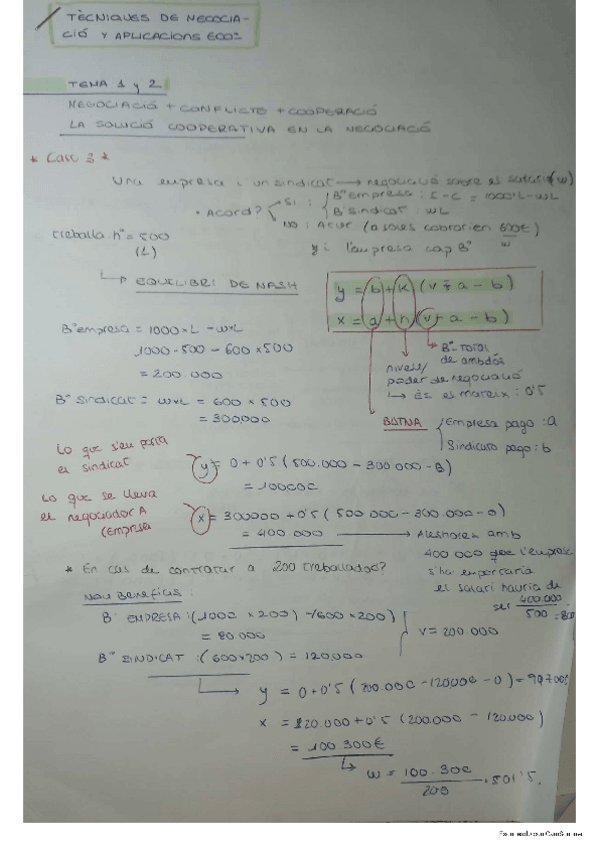 TÈCNIQUES DE NEGOCIA-
CIÓ Y APLICACIONS ECO:
TEMA 1 y 2
NEGOCIACIÓ + CONFLICTE + COOPERACIÓ
LA SOLUCIÓ COOPERATIVA EN LA NEGOCIACIÓ
* Caso 3 *
Una empresa i un sindicat → negociació sobre el salari (w)
• Acord?
SI : Bº Empresa : I - C = 1000·L - WL
B Sindicat : WL
NO : Atur (a soles cobrarien 600€)
w
y i l'empresa cap Bº
treballa. nº = 500
(L)
EQUILIBRI DE NASH
y = b + k (v - a - b)
x = a + h (v - a - b)
Bº empresa = 1000 × L - w×L
1000·500 - 600 × 500
= 200.000
Bº Sindicat = w×L = 600 × 500
= 300.000
Bº TOTAL
de ambdós
nivell/
poder de negociació
↳ és el mateix : 0'5
BATNA
Empresa pago : a
Sindicato pago : b
Lo que s'en porta
el sindicat
y = 0 + 0'5 (500.000 - 300.000 - 0)
= 100000
Lo que se lleva
el negociador A
(Empresa
x = 300000 + 0'5 (500.000 - 300.000 - 0)
= 400.000 → Aleshores amb
400 000 que l'empresa
s'ha emportaria
el salari hauria de
ser 400.000
500 = 800
* En cas de contratar a 200 treballadors?
Nou Beneficis :
B. EMPRESA : (1000 × 200) - (600 × 200)
= 80.000
V = 200.000
Bº SINDICAT : (600×200) = 120.000
y = 0 + 0'5 (200.000 - 120.000 - 0) =
x = 120.000 + 0'5 (200.000 - 120.000)
= 100 300€
w = 100.300
200
501'5.